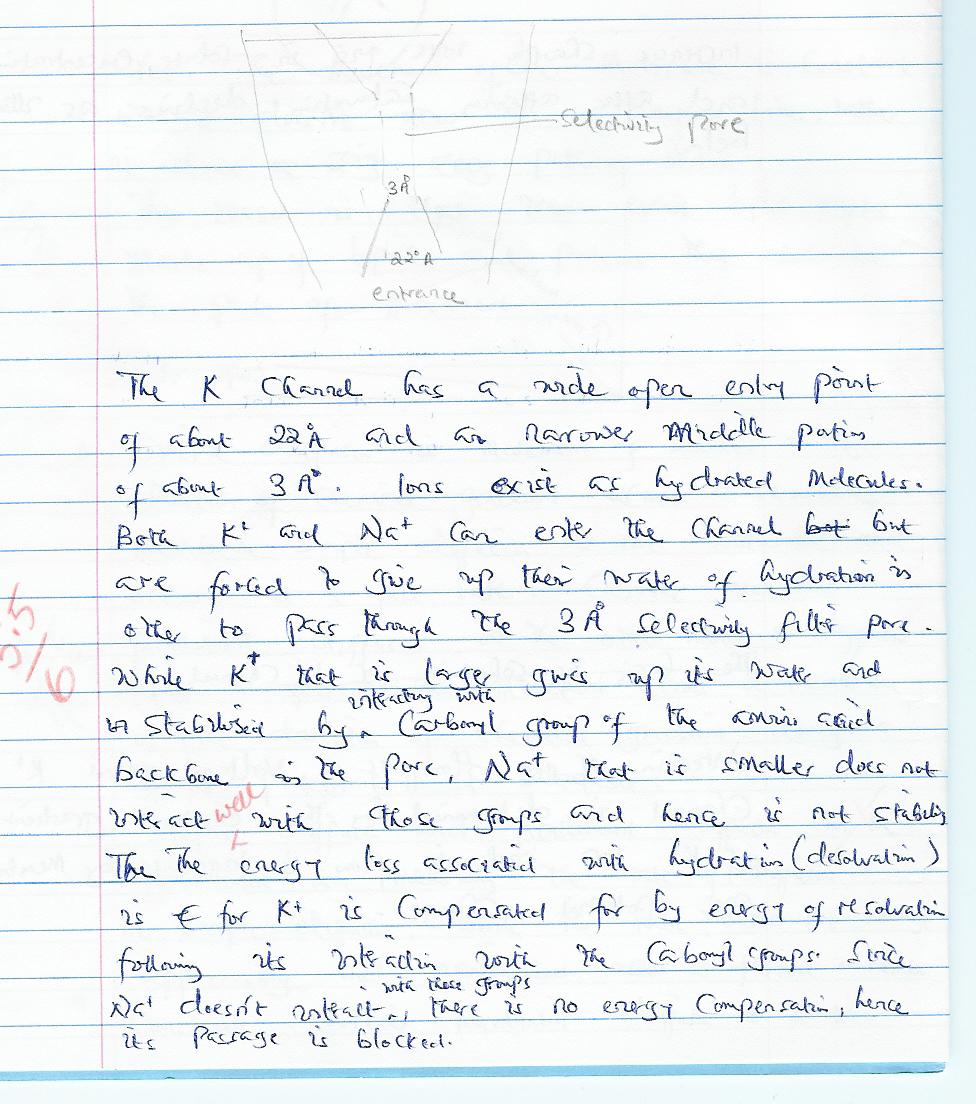 Selectivity pore
3Å
22°A
entrance
The K Channel has a wide open entry point
of about 22Å and an narrower middle portion
of about 3 A°. Ions exist as hydrated molecules.
Both K⁺ and Na⁺ can enter the channel but but
are forced to give up their water of hydration in
other to pass through the 3Å selectivity filter pore.
While K⁺ that is larger gives up its water and
interacting with
is stabilised by ‸ carbonyl group of the amino acid
backbone in the pore, Na⁺ that is smaller does not
well
interact with those groups and hence is not stability
The The energy loss associated with hydration (desolvation)
is for K⁺ is compensated for by energy of resolvation
following its interaction with the carbonyl groups. Since
with these groups
Na⁺ doesn't interact ‸, there is no energy compensation, hence
its passage is blocked.
5/6